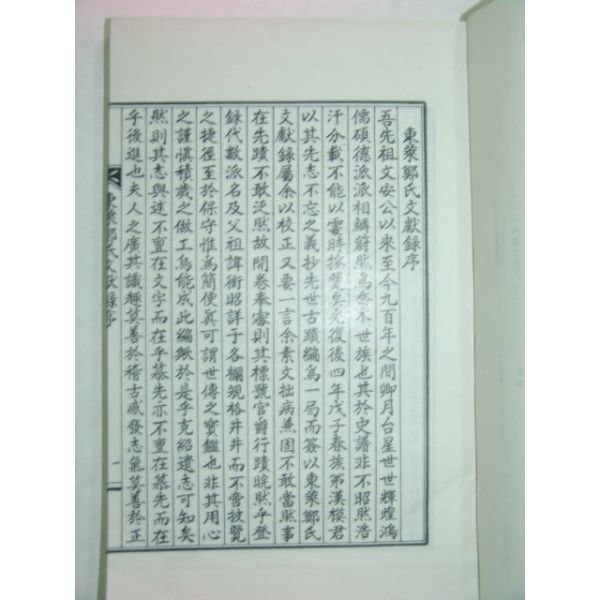 東萊鄭氏文獻錄序
吾先祖文安公以來至今九百年之間卿月台星世世輝煌鴻
儒碩德派派相鱗蔚然爲 世族也其於史譜非不昭然浩
汗分載不能以霎時 覽矣 復後四年戊子春族弟漢模君
以其先志不忘之義抄先世古蹟編爲一局而簽以東萊鄭氏
文獻錄屬余以校正又要一言余素文拙病蕪固不敢當然事
在先蹟不敢泛然故開卷奉審則其標號官爵行蹟晥然乎登
錄代數派名及父祖諱銜昭詳于各欄規格井井而不啻披覽
之捷徑至於保守惟爲簡便眞可謂世傳之寶鑑也非其用心
之謹愼積歲之做工烏能成此編歟於是乎克紹遺志可知矣
然則其志與述不亶在文字而在乎慕先亦不亶在慕先而在
乎後進也夫人之廣其識趣莫善於稽古感發志氣莫善於正
東萊鄭氏文獻錄序
一